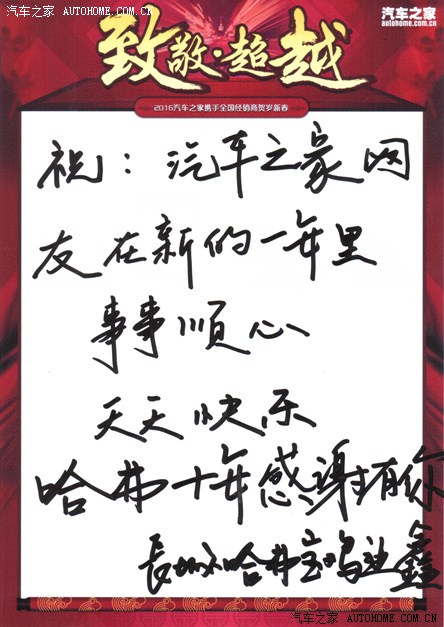 汽车之家 AUTOHOME.COM.CN
汽车之家
autohome.com.cn
致敬·超越
2016汽车之家携手全国经销商贺岁新春
祝：汽车之家网
友在新的一年里
事事顺心
天天快乐
哈弗十年感谢有你
長城哈弗宝鸡迎鑫
汽车之家 AUTOHOME.COM.CN